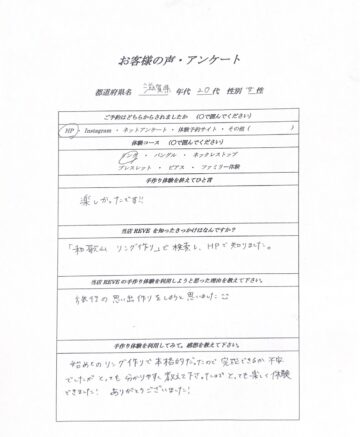 お客様の声・アンケート
都道府県名 滋賀県 年代 20代 性別 女性
ご予約はどちらからされましたか (○で囲んでください)
HP ・ Instagram ・ ネットアンケート ・ 体験予約サイト ・ その他 ( )
体験コース (○で囲んでください)
リング ・ バングル ・ ネックレストップ
ブレスレット ・ ピアス ・ ファミリー体験
手作り体験を終えてひと言
楽しかったです!!
当店REVEを知ったきっかけはなんですか?
「和歌山 リング作り」で検索し、HPで知りました。
当店REVEの手作り体験を利用しようと思った理由を教えて下さい。
旅行の思い出作りをしようと思いました
手作り体験を利用してみて。感想を教えて下さい。
始めてのリング作りで本格的だったので実際できるか不安
でしたがとっても分かりやすく教えて下さったのでとっても楽しく体験
できました! ありがとうございました!